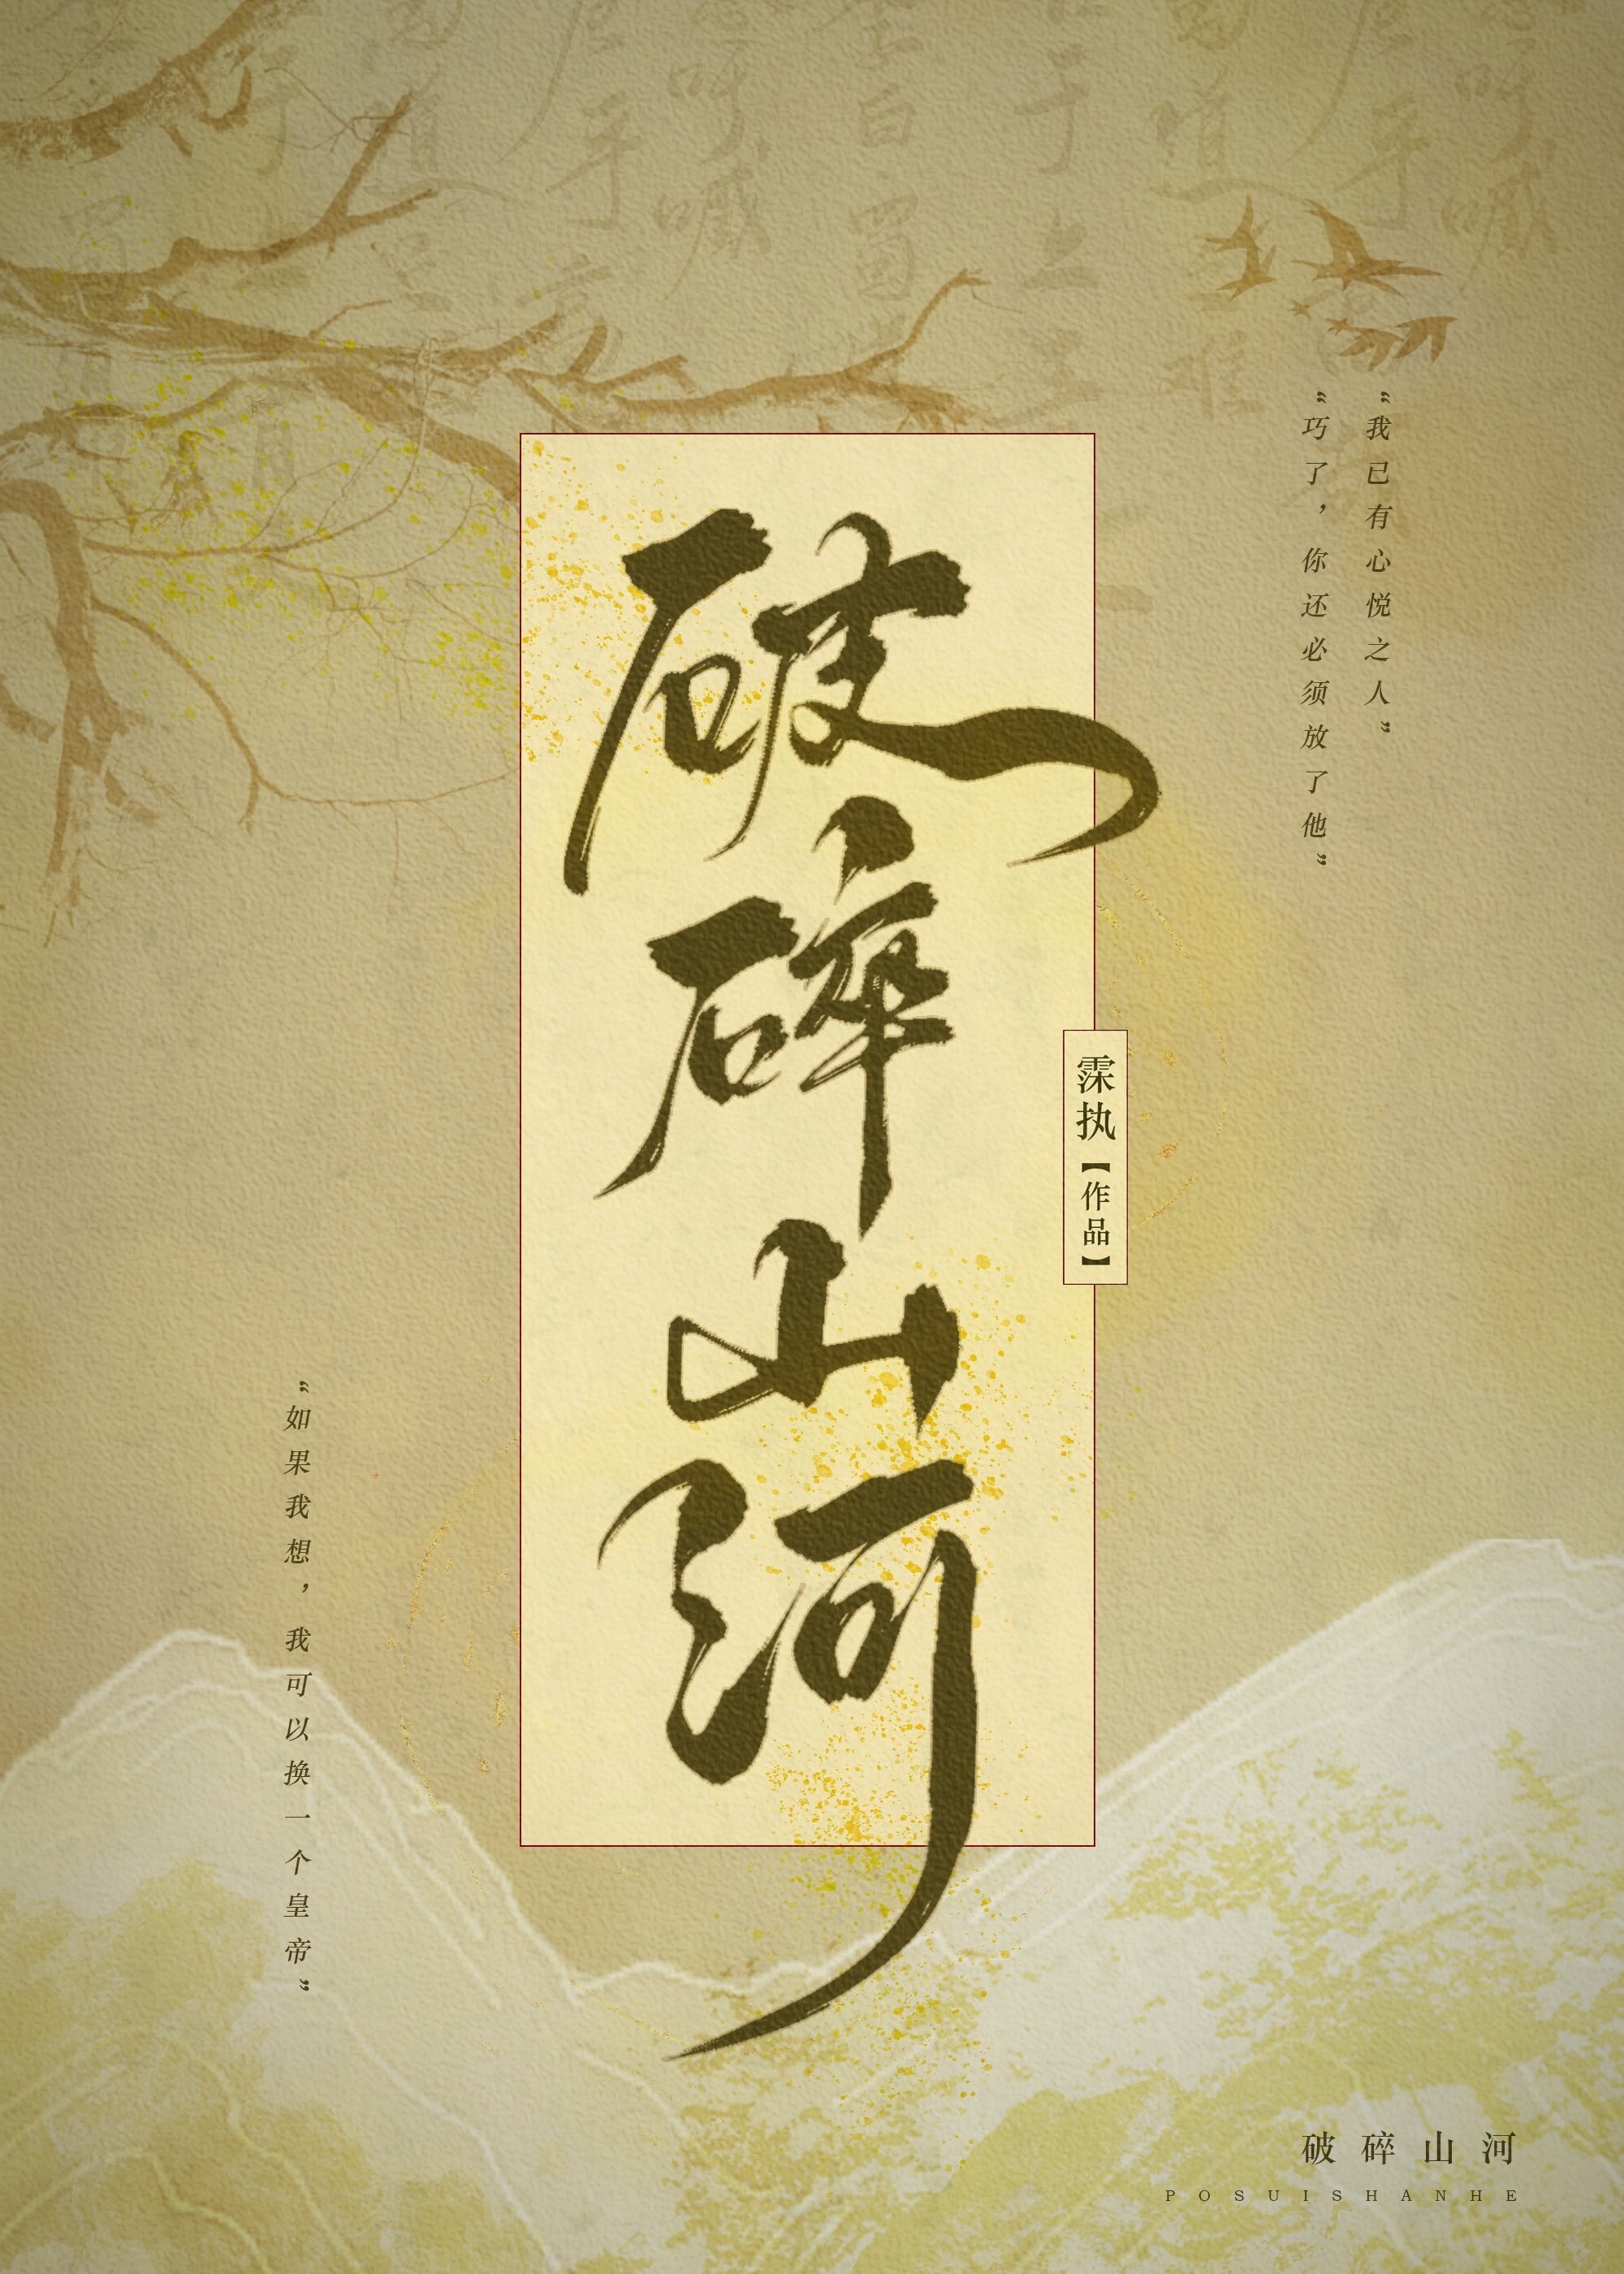 “我已有心悦之人”
“巧了，你还必须放了他”
破碎山河
霂执【作品】
“如果我想，我可以换一个皇帝”
破碎山河
POSUISHANHE